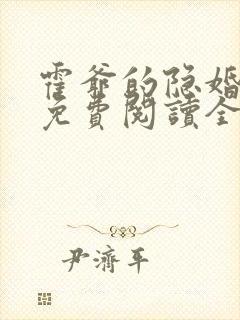 霍爷的隐婚
免費閱讀全
尹濟平